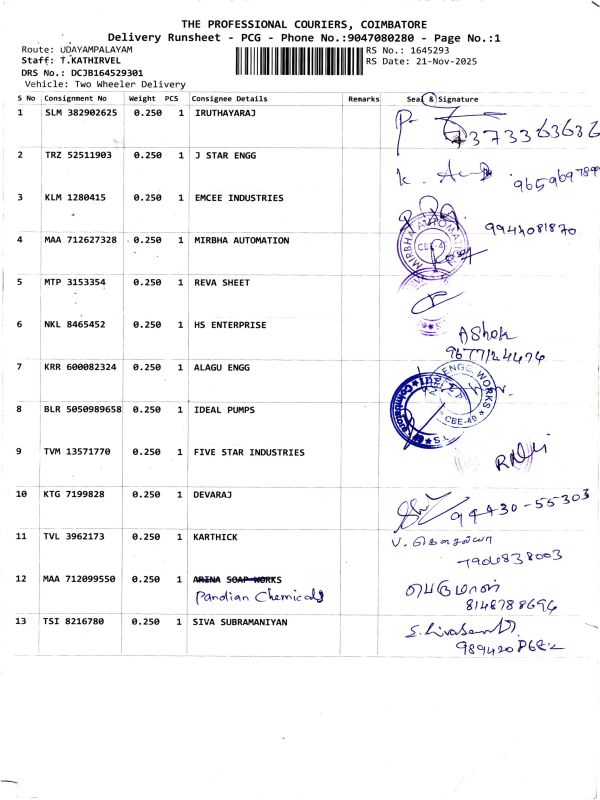 THE PROFESSIONAL COURIERS, COIMBATORE
Delivery Runsheet - PCG - Phone No.:9047080280 - Page No.:1
Route: UDAYAMPALAYAM
RS No.: 1645293
Staff: T.KATHIRVEL
RS Date: 21-Nov-2025
DRS No.: DCJB164529301
Vehicle: Two Wheeler Delivery
S No Consignment No Weight PCS Consignee Details Remarks Seal & Signature
1 SLM 382902625 0.250 1 IRUTHAYARAJ
7373363636
2 TRZ 52511903 0.250 1 J STAR ENGG
3 KLM 1280415 0.250 1 EMCEE INDUSTRIES
9944081870
4 MAA 712627328 0.250 1 MIRBHA AUTOMATION
MIRBHA AUTOMATION
5 MTP 3153354 0.250 1 REVA SHEET
6 NKL 8465452 0.250 1 HS ENTERPRISE
Ashok
7 KRR 600082324 0.250 1 ALAGU ENGG
ENGG WORKS
8 BLR 5050989658 1 0.250 1 IDEAL PUMPS
9 TVM 13571770 0.250 1 FIVE STAR INDUSTRIES
10 KTG 7199828 0.250 1 DEVARAJ
94430-55303
11 TVL 3962173 0.250 1 KARTHICK
12 MAA 712099550 0.250 1 ARINA SOAP WORKS
Pandian Chemicals
பெருமாள்
8148788694
13 TSI 8216780 0.250 1 SIVA SUBRAMANIYAN